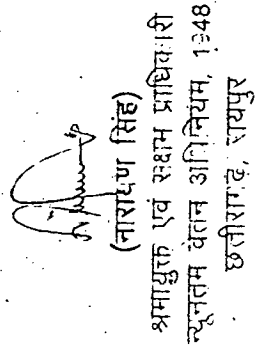 (नारायण सिंह)
श्रमायुक्त एवं सक्षम प्राधिकारी
न्यूनतम वेतन अधिनियम, 1948
छत्तीसगढ़, रायपुर